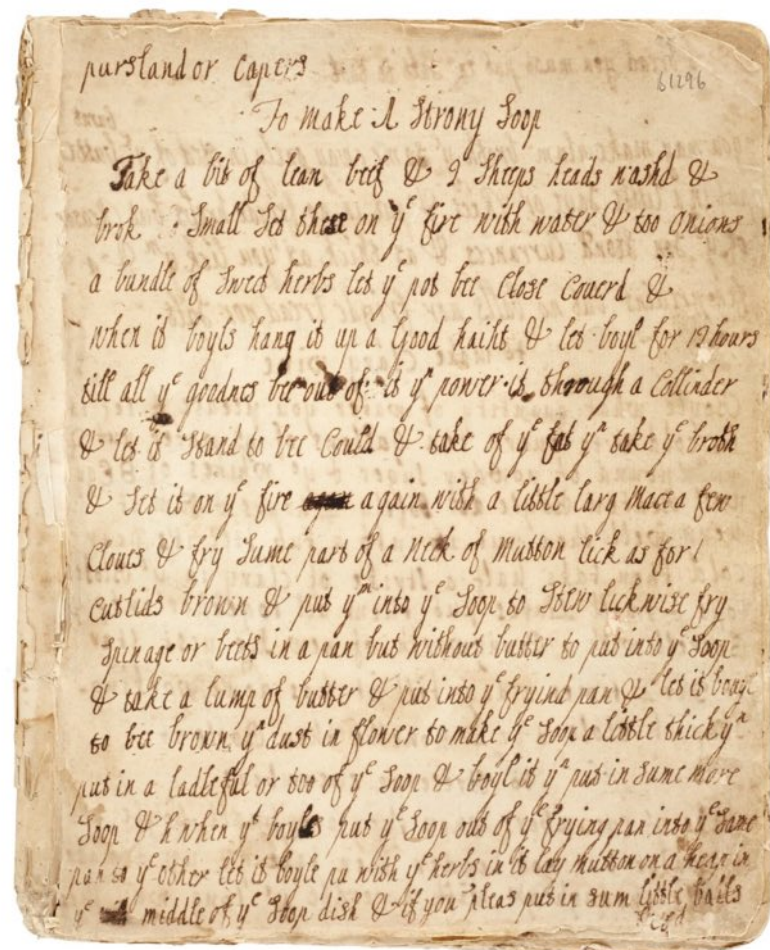 pursland or Capers
61296
To make A Strong Soop
Take a bit of lean beef & 2 Sheeps heads washd &
brok Small Set these on yᵉ fire with water & too Onions
a bundle of Sweet herbs let yᵉ pot bee Close Couerd &
when it boyls hang it up a Good haiht & let boyl for 12 hours
till all yᵉ goodnes bee out of it yⁿ power it through a Collinder
& let it Stand to bee Could & take of yᵉ fat yⁿ take yᵉ broth
& Set it on yᵉ fire again with a little larg Mace a few
Cloues & fry Sume part of a Neck of Mutton lick as for
Cutlids brown & put yᵐ into yᵉ Soop to Stew lickwise fry
Spinage or beets in a pan but without butter to put into yᵉ Soop
& take a lump of butter & put into yᵉ frying pan & let it boyl
to bee brown yⁿ dust in flower to make yᵉ Soop a little thick yⁿ
put in a ladleful or too of yᵉ Soop & boyl it yⁿ put in Sume more
Soop & when yᵗ boyles put yᵉ Soop out of yᵉ frying pan into yᵉ Same
pan to yᵉ other let it boyle with yᵉ herbs in it lay mutton on a heap in
yᵉ middle of yᵉ Soop dish & if you pleas put in sum little balls